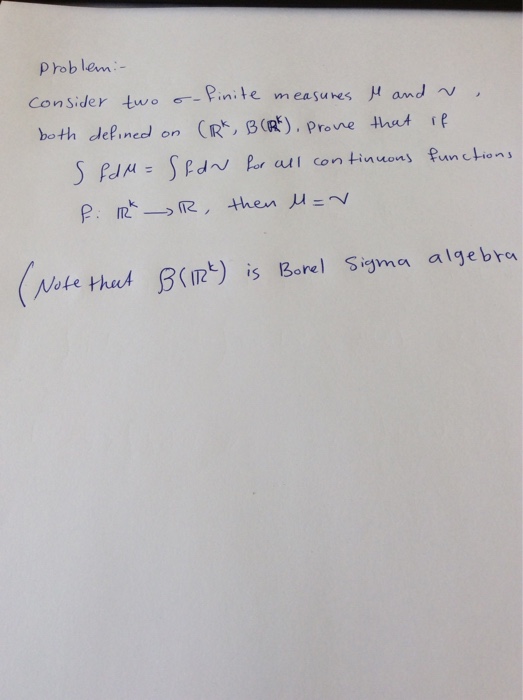 Problem:-
Consider two σ-finite measures μ and ν,
both defined on (ℝᵏ, B(ℝᵏ)). Prove that if
∫ fdμ = ∫ fdν for all continuous functions
f: ℝᵏ → ℝ, then μ = ν
(Note that B(ℝᵏ) is Borel Sigma algebra